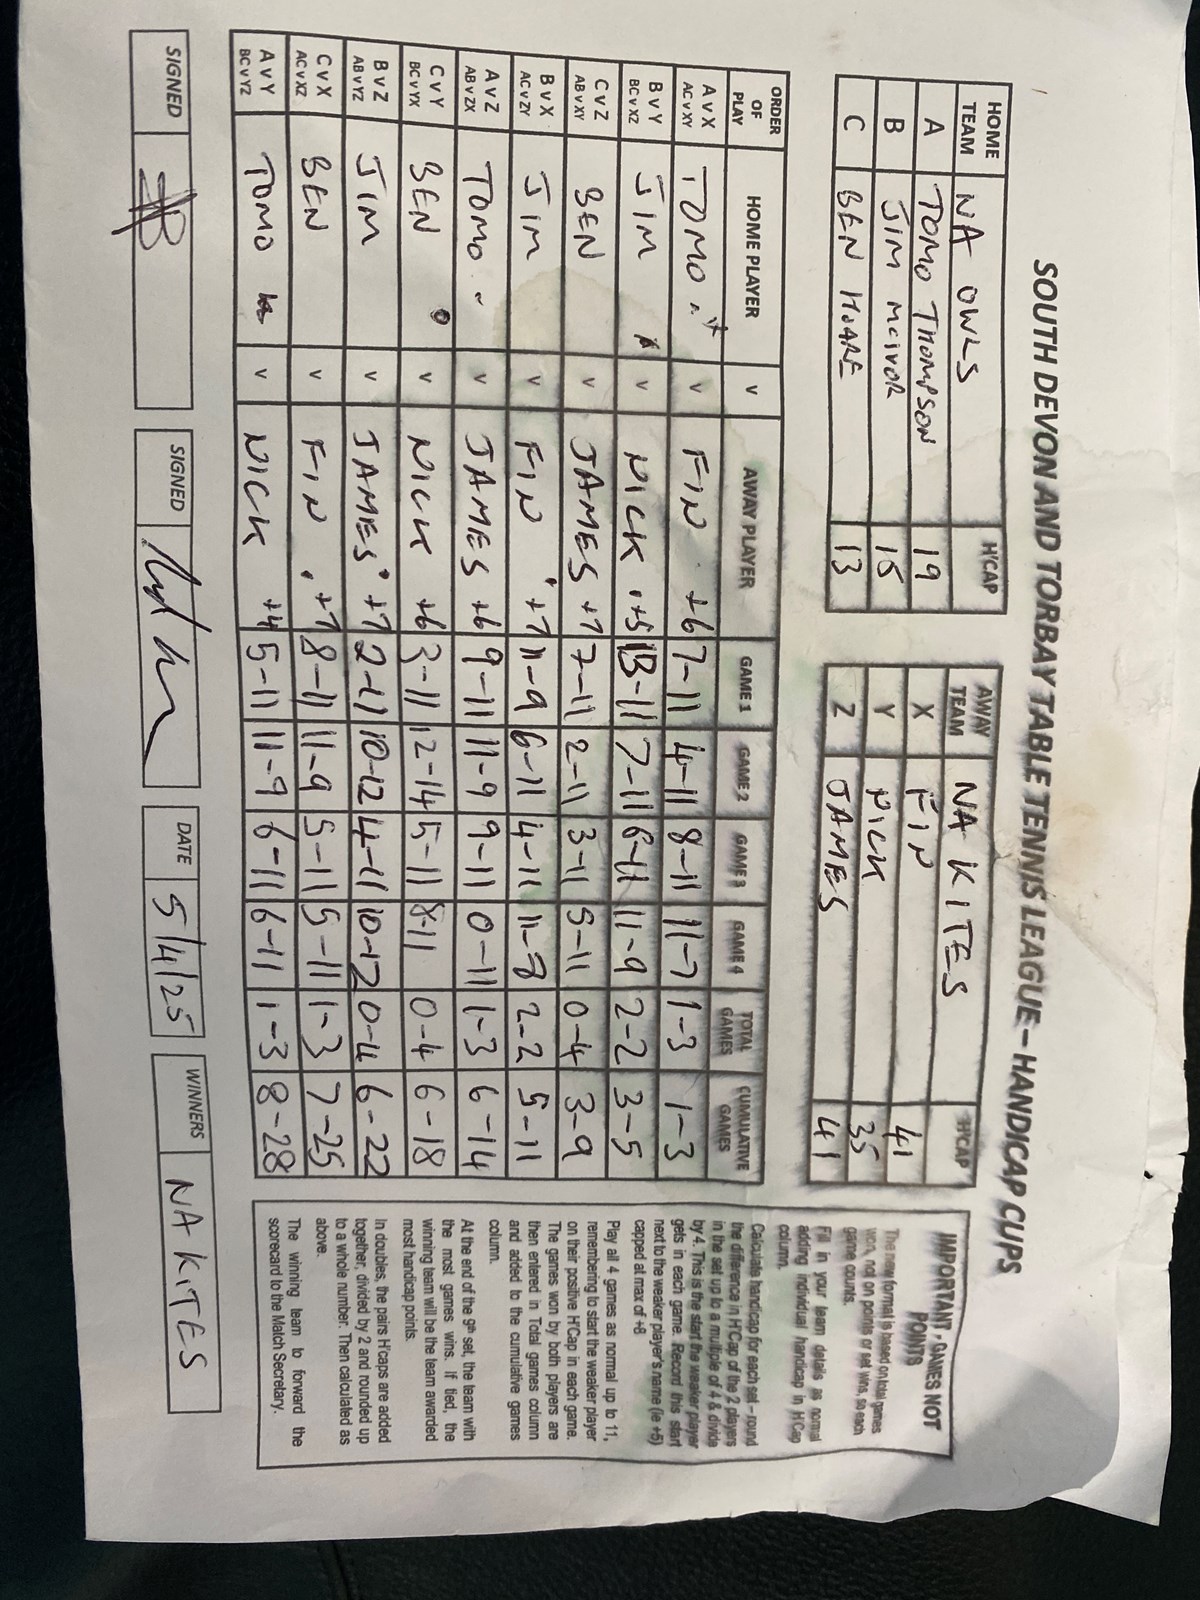 SOUTH DEVON AND TORBAY TABLE TENNIS LEAGUE – HANDICAP CUPS
HOME TEAM NA OWLS H'CAP
A TOMO THOMPSON 19
B JIM MCIVOR 15
C BEN HOARE 13
AWAY TEAM NA KITES H'CAP
X FIN 41
Y NICK 35
Z JAMES 41
ORDER OF PLAY HOME PLAYER v AWAY PLAYER GAME 1 GAME 2 GAME 3 GAME 4 TOTAL GAMES CUMULATIVE GAMES
A v X AC v XY TOMO v FIN +6 7-11 4-11 8-11 11-7 1-3 1-3
B v Y BC v XZ JIM v NICK +5 13-11 7-11 6-11 11-9 2-2 3-5
C v Z AB v XY BEN v JAMES +7 7-11 2-11 3-11 5-11 0-4 3-9
B v X AC v ZY JIM v FIN +7 11-9 6-11 4-11 11-8 2-2 5-11
A v Z AB v ZX TOMO v JAMES +6 9-11 11-9 9-11 0-11 1-3 6-14
C v Y BC v YX BEN v NICK +6 3-11 12-14 5-11 8-11 0-4 6-18
B v Z AB v YZ JIM v JAMES +7 2-11 10-12 4-11 10-12 0-4 6-22
C v X AC v XZ BEN v FIN +7 8-11 11-9 5-11 5-11 1-3 7-25
A v Y BC v YZ TOMO v NICK +4 5-11 11-9 6-11 6-11 1-3 8-28
IMPORTANT - GAMES NOT POINTS
The new format is based on total games
won, not on points or set wins, so each
game counts.
Fill in your team details as normal
adding individual handicap in H'Cap
column.
Calculate handicap for each set – round
the difference in H'Cap of the 2 players
in the set up to a multiple of 4 & divide
by 4. This is the start the weaker player
gets in each game. Record this start
next to the weaker player's name (ie +5)
capped at max of +8
Play all 4 games as normal up to 11,
remembering to start the weaker player
on their positive H'Cap in each game.
The games won by both players are
then entered in Total games column
and added to the cumulative games
column.
At the end of the 9th set, the team with
the most games wins. If tied, the
winning team will be the team awarded
most handicap points.
In doubles, the pairs H'caps are added
together, divided by 2 and rounded up
to a whole number. Then calculated as
above.
The winning team to forward the
scorecard to the Match Secretary.
SIGNED SIGNED DATE 5/4/25 WINNERS NA KITES